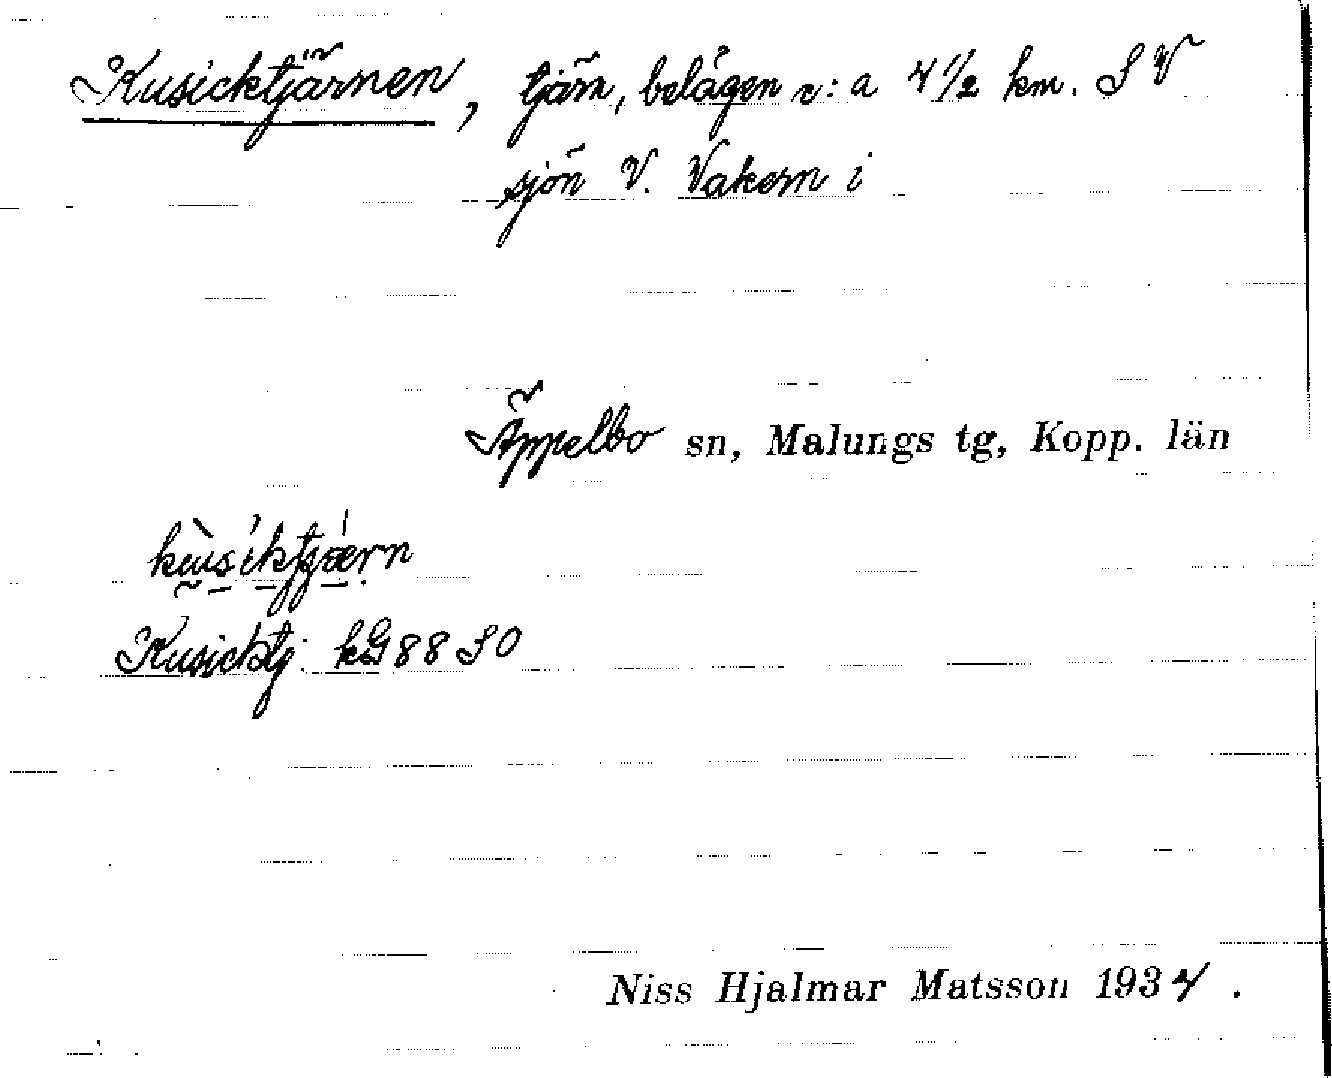 Kusicktjärnen, tjärn, belägen c:a 4 1/2 km. S V
sjön V. Vakern i
Äppelbo sn, Malungs tg, Kopp. län
Kusicktj. kG 88 SO
Niss Hjalmar Matsson 1934.